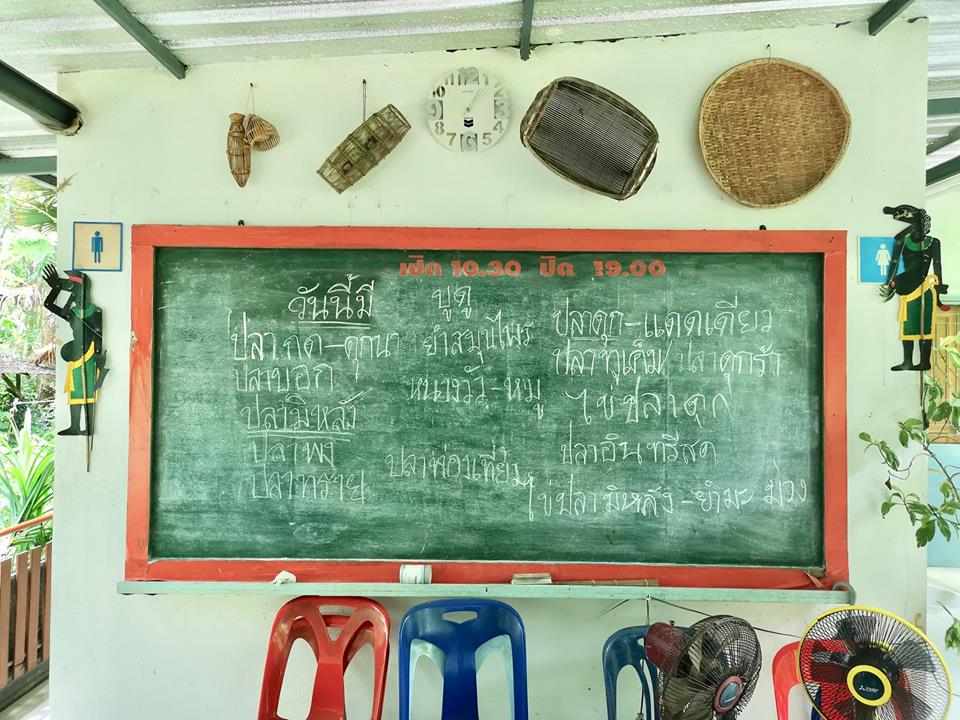 เปิด 10.30 ปิด 19.00
วันนี้มี
ปลากด-ดุกนา
ปลาบอก
ปลามิหลัง
ปลาพง
ปลาทราย
บูดู
ยำสมุนไพร
หนางวัว-หมู
ปลาดุก-แดดเดียว
ปลาทูเค็ม ปลาดุกร้า
ไข่ปลาดุก
ปลาอินทรีสด
ไข่ปลามิหลัง-ยำมะม่วง